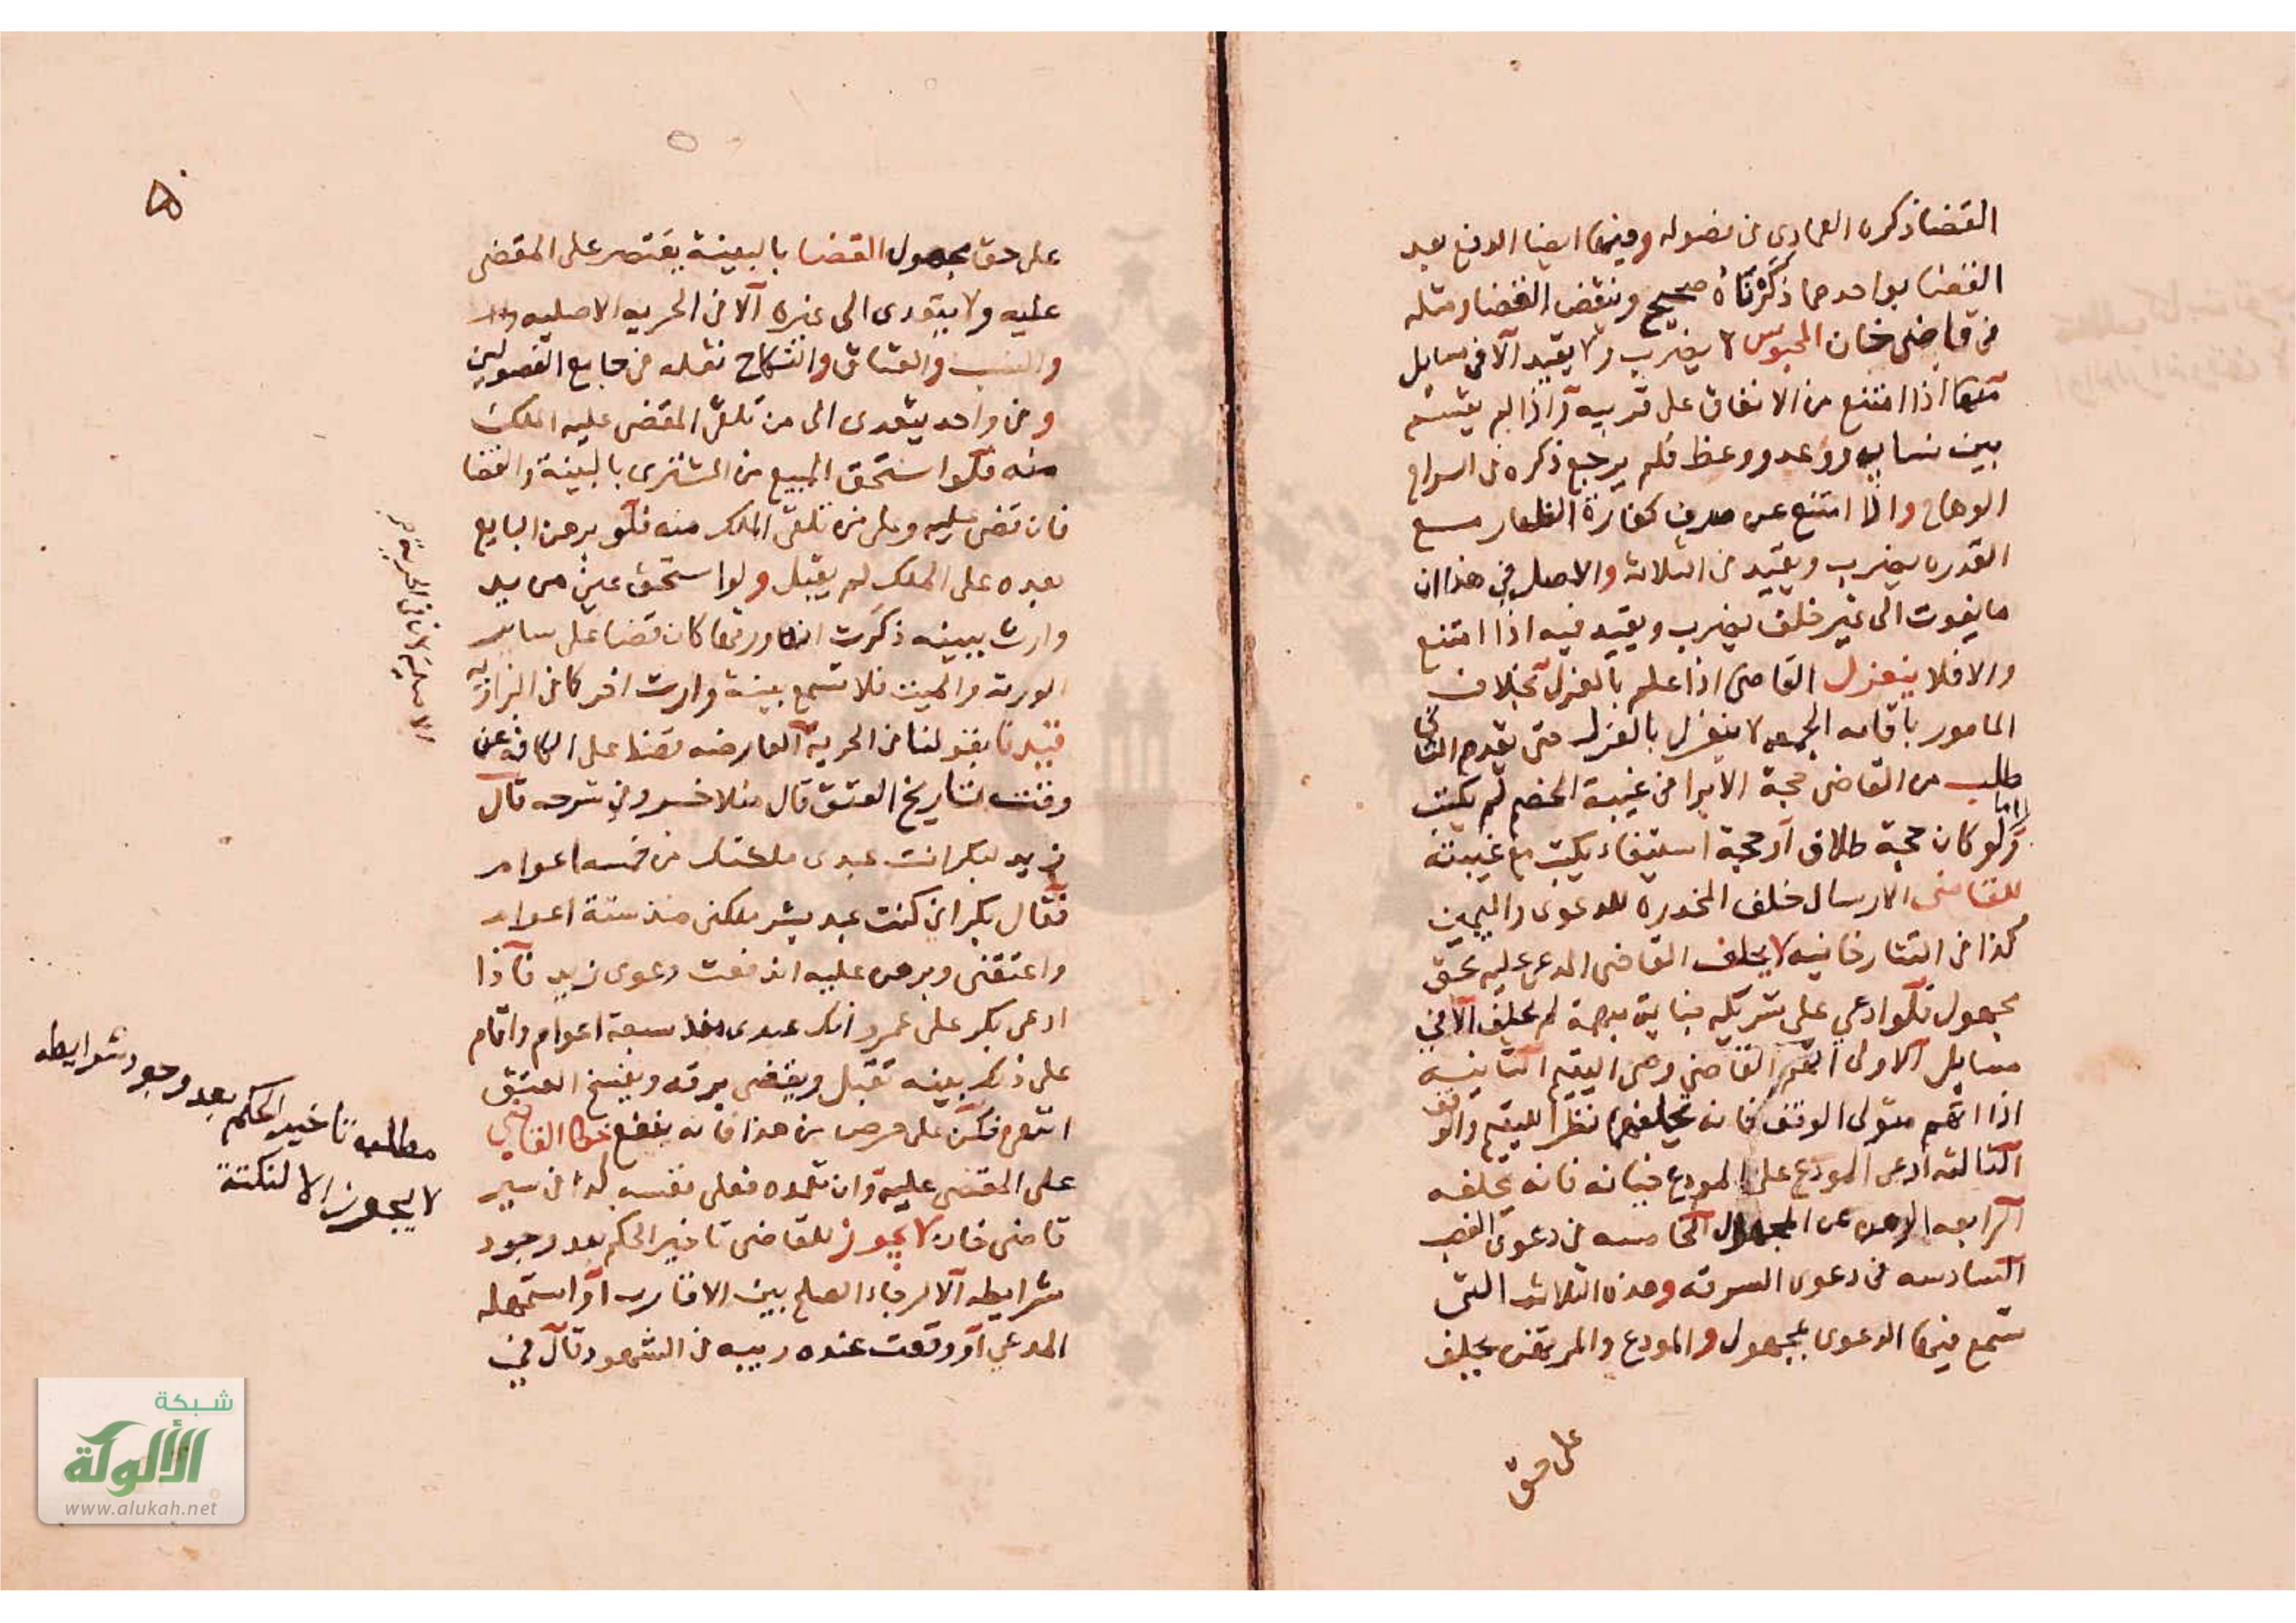 القضا ذكره العمادى فى فصوله وفيها ايضا الدفع بعد
القضا بواحد مما ذكرناه صحيح وينقض القضا ومثله
فى قاضى خان المحبوس لا يضرب ولا يقيد الا فى مسايل
منها اذا امتنع من الانفاق على قريبه واذا لم يقسم
بين نسايه ووعد ووعظ فلم يرجع ذكره فى السراج
الوهاج واذا امتنع عن صرف كفارة الظهار مع
القدره يضرب ويقيد فى الثلاثه والاصل فى هذا ان
ما يفوت الى غير خلف يضرب ويقيد فيه اذا امتنع
والا فلا ينعزل القاضى اذا علم بالعزل بخلاف
المامور باقامه الجمعه لا ينعزل بالعزل حتى يقدم الثانى
طلب من القاضى حجة الابرا فى غيبة الخصم لم يكتب
اما
ولو كان حجة طلاق او حجة استيفاء يكتب مع غيبته
للقاضى الارسال خلف المخدره للدعوى واليمين
كذا فى التتارخانيه لا يحلف القاضى المدعى عليه بحق
مجهول فلو ادعى على شريكه خيانة مبهمة لم يحلف الا فى
مسايل الاولى اتهم القاضى وصى اليتيم الثانيه
اذا اتهم متولى الوقف فانه يحلفهما نظرا لليتيم والوقف
الثالثه ادعى المودع على المودع خيانه فانه يحلفه
الرابعه الرهن المجهول الخامسه فى دعوى الغصب
السادسه فى دعوى السرقه وهذه الثلاث التى
تسمع فيها الدعوى بمجهول والمودع والمرتهن يحلف
على حق
٥٠
على حق مجهول القضا بالبينة يقتصر على المقضى
عليه ولا يتعدى الى غيره الا فى الحريه الاصليه
والنسب والعتاق والنكاح نقله فى جامع الفصولين
وفى واحد يتعدى الى من تلقى المقضى عليه الملك
منه فلو استحق المبيع من المشترى بالبينة والقضا
فان قضى عليه وعلى من تلقى الملك منه فلو برهن البايع
بعده على الملك لم يقبل ولو استحق عين من يد
وارث ببينه ذكرت انه ورثها كان قضا على ساير
الورثه والميت فلا تسمع بينة وارث اخر كما فى البزازيه
قيدنا بقولنا فى الحرية العارضه قضا على الكافه عن
وقت تاريخ العتق قال منلا خسرو فى شرحه قال
زيد لبكر انت عبدى ملكتك من خمسه اعوام
فقال بكر انى كنت عبد بشر ملكنى منذ ستة اعوام
واعتقنى وبرهن عليه اندفعت دعوى زيد فاذا
ادعى بكر على عمرو انك عبدى منذ سبعة اعوام واقام
على ذلك بينه تقبل ويقضى برقه ويفسخ العتق
انتهى فكن على حرص من هذا فانه ينفع خطا القاضى
على المقضى عليه وان تعمده فعلى نفسه كذا فى سير
قاضى خان لا يجوز للقاضى تاخير الحكم بعد وجود
شرايطه الا لرجاء الصلح بين الاقارب او استمهله
المدعى او وقعت عنده ريبه فى الشهود وقال فى
مطلب تاخير الحكم بعد وجود شرايطه
لا يجوز الا لنكتة
شبكة
الألوكة
www.alukah.net